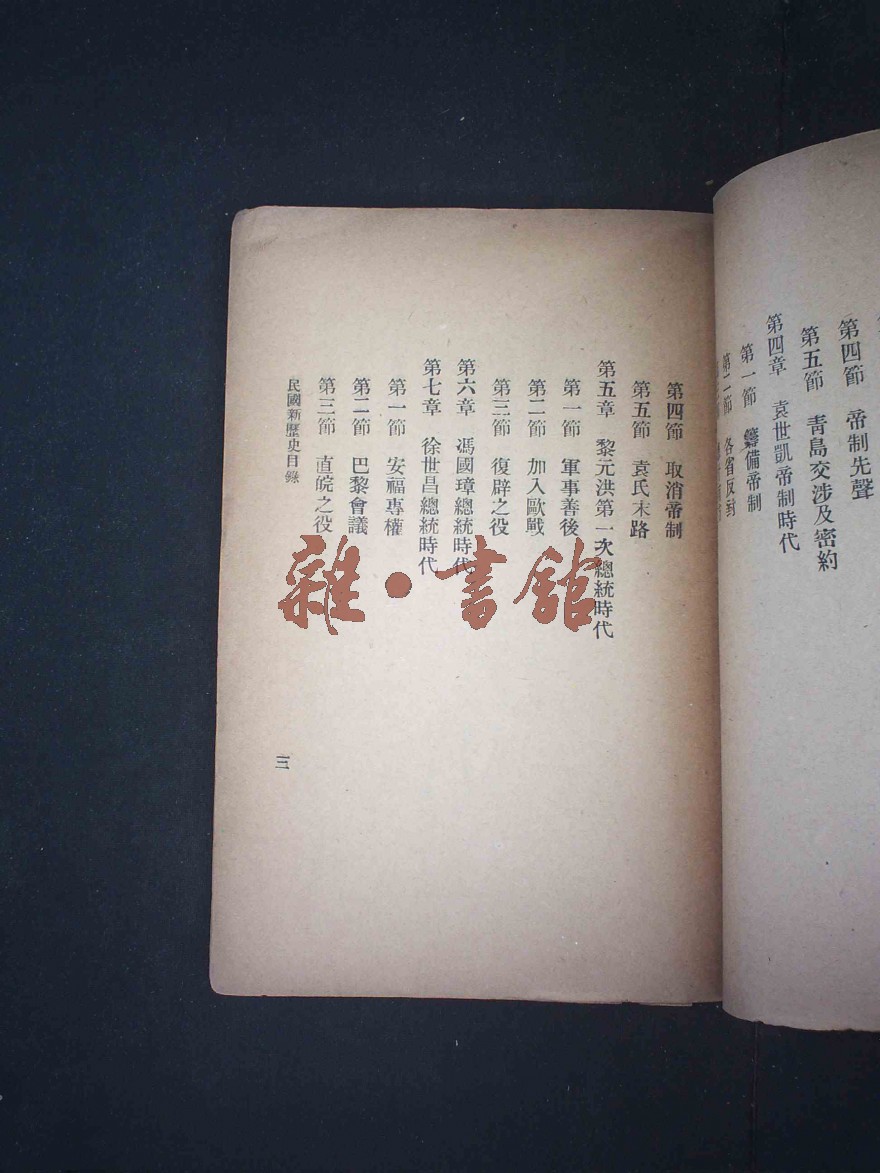 第四節　帝制先聲
第五節　青島交涉及密約
第四章　袁世凱帝制時代
第一節　籌備帝制
第二節　各省反對
第四節　取消帝制
第五節　袁氏末路
第五章　黎元洪第一次總統時代
第一節　軍事善後
第二節　加入歐戰
第三節　復辟之役
第六章　馮國璋總統時代
第七章　徐世昌總統時代
第一節　安福專權
第二節　巴黎會議
第三節　直皖之役
民國新歷史目錄
三
雜·書館